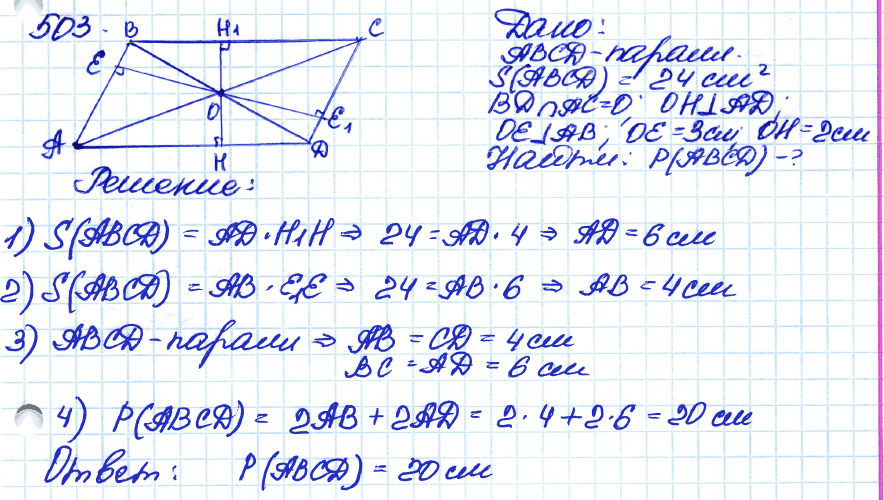 503.
B H₁ C
E
O E₁
A H D
Дано:
ABCD - паралл.
S(ABCD) = 24 см²
BD ∩ AC = O; OH ⊥ AD;
OE ⊥ AB; OE = 3 см; OH = 2 см
Найти: P(ABCD) - ?
Решение:
1) S(ABCD) = AD · H₁H ⇒ 24 = AD · 4 ⇒ AD = 6 см
2) S(ABCD) = AB · E₁E ⇒ 24 = AB · 6 ⇒ AB = 4 см
3) ABCD - паралл ⇒ AB = CD = 4 см
BC = AD = 6 см
4) P(ABCD) = 2AB + 2AD = 2 · 4 + 2 · 6 = 20 см
Ответ: P(ABCD) = 20 см